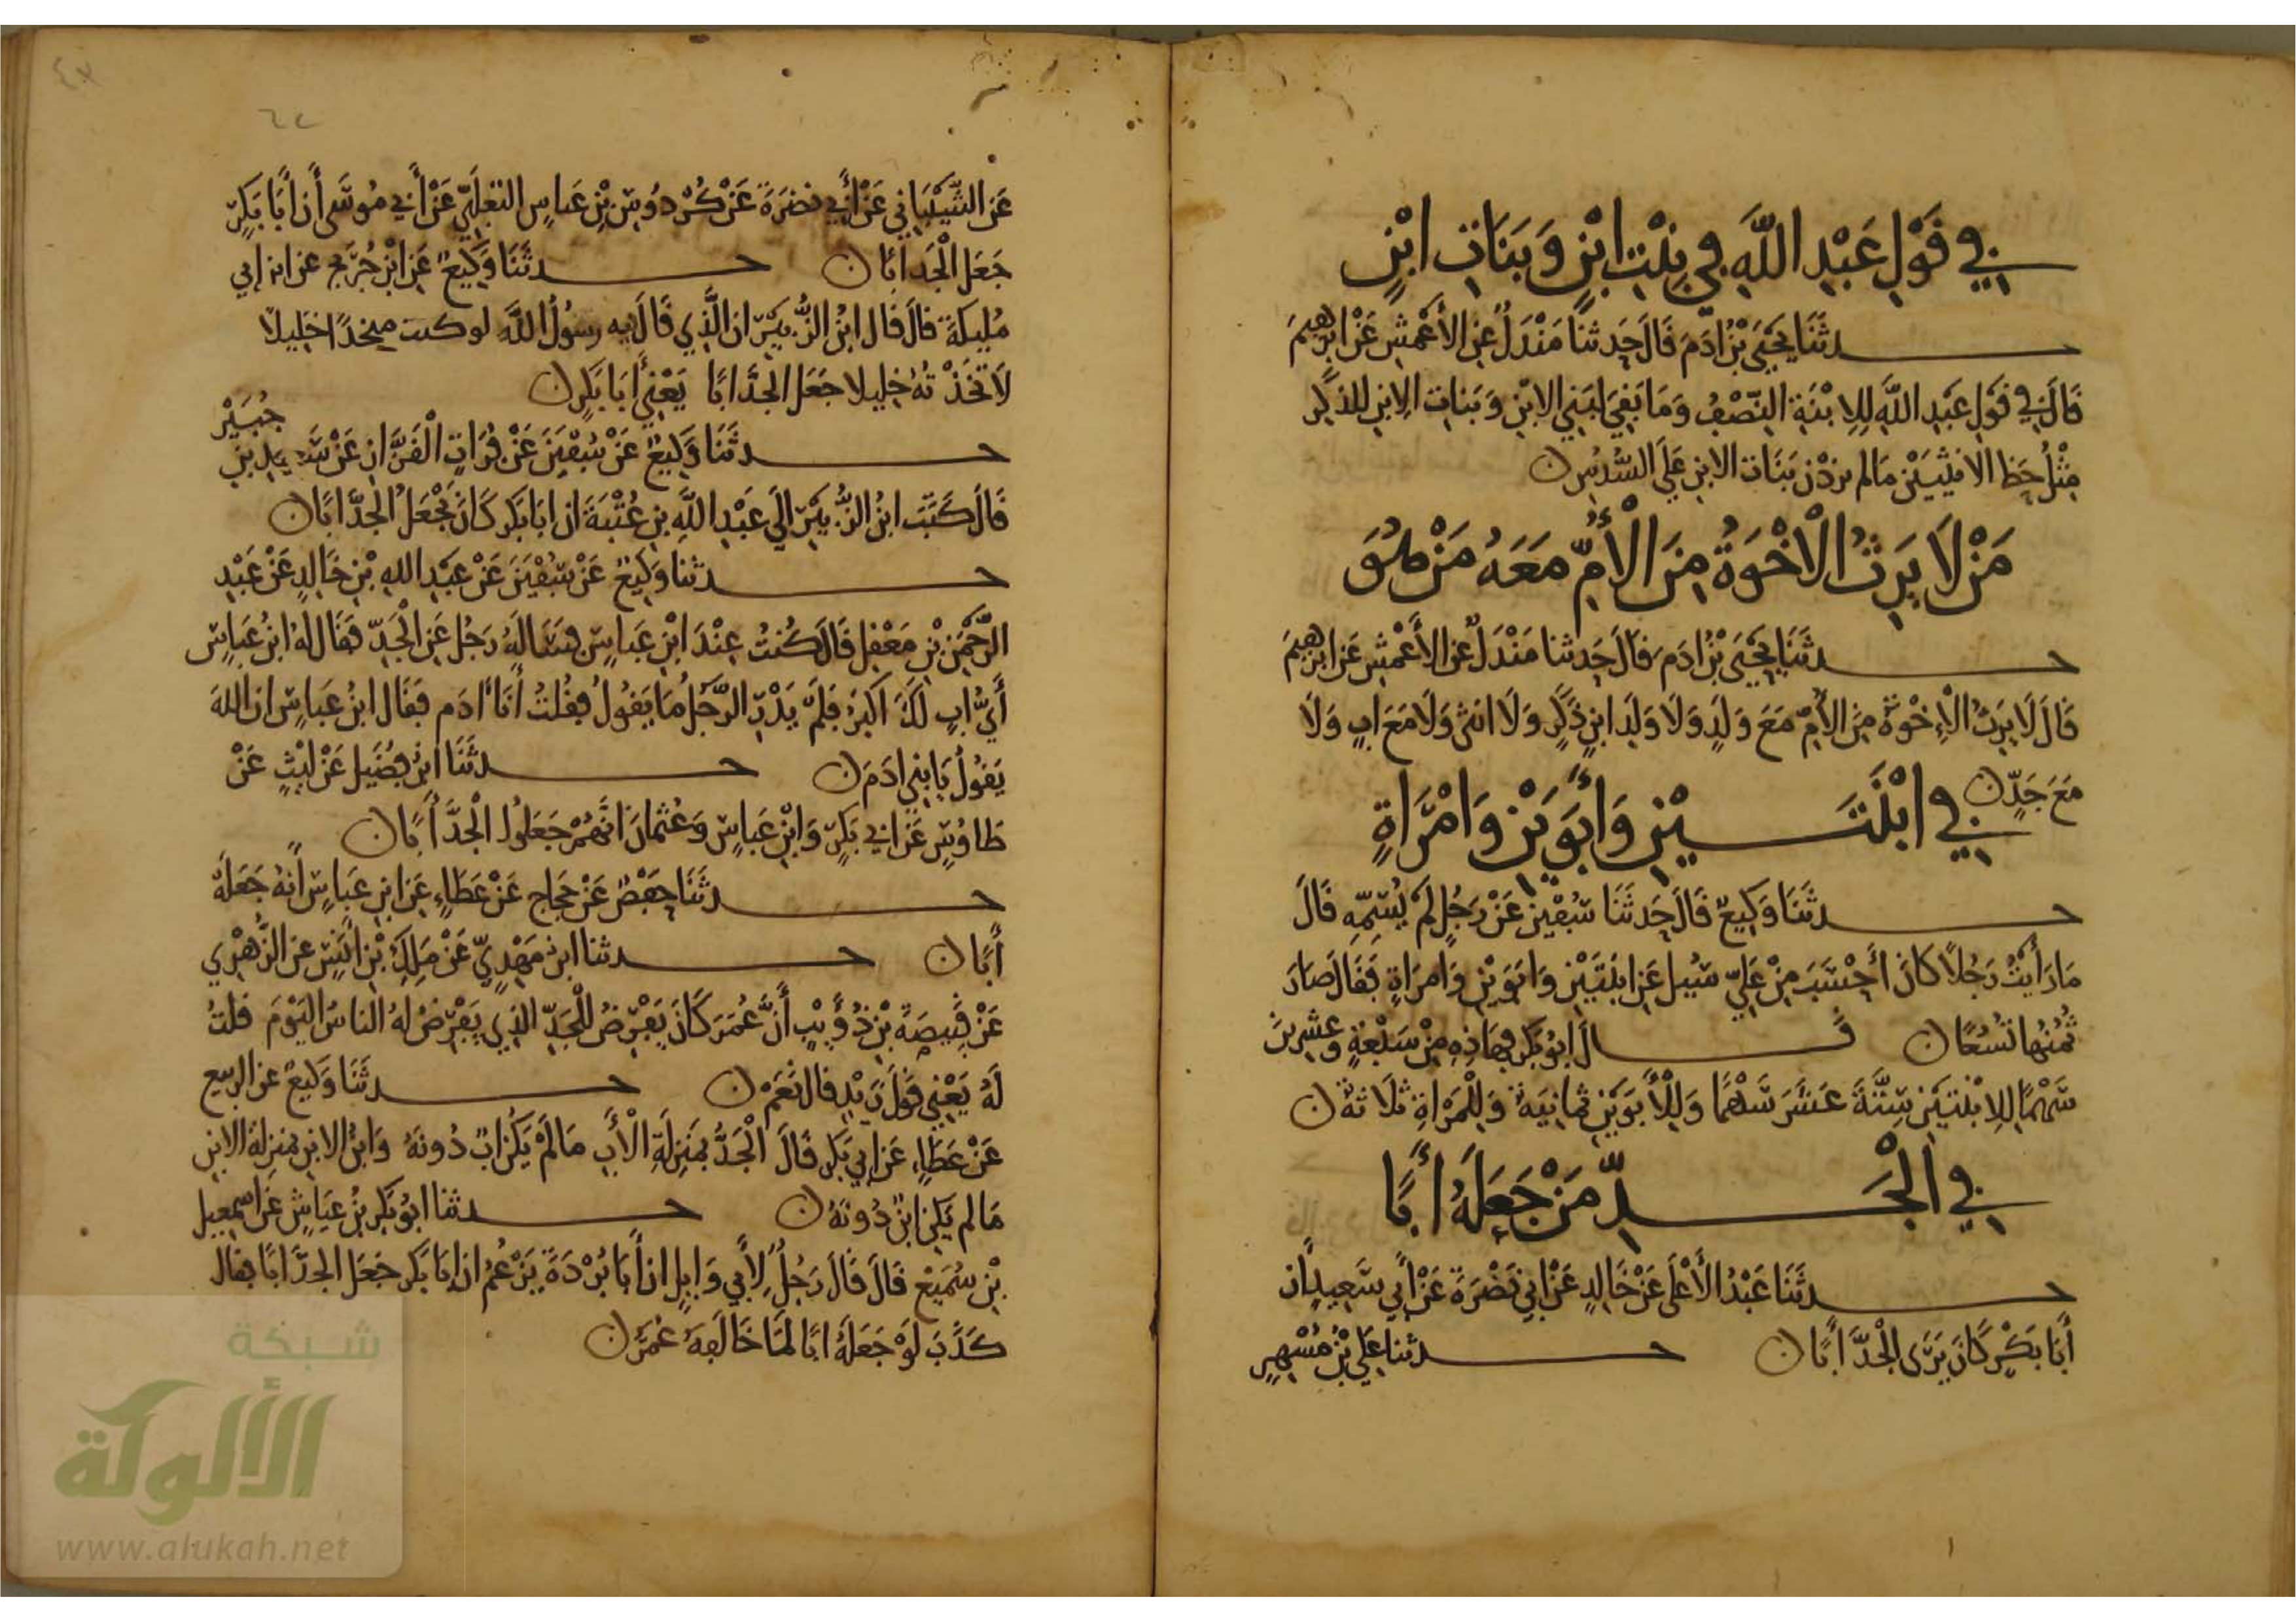 في قَوْلِ عَبْدِ اللَّهِ فِي بِنْتِ ابْنٍ وَبَنَاتِ ابْنٍ
حـدثَنَا يَحْيَى بْنُ ادَمَ قَالَ حَدثنا مَنْدَلٌ عن الأَعْمَشِ عَنْ ابرهِيمَ
قَالَ في قَوْلِ عَبْدِ اللَّهِ لِلِابْنَةِ النِّصْفُ وَمَا بَقِيَ لبَنِي الابْنِ وَبَنَاتِ الِابنِ للذكَرِ
مِثْلُ حَظ الانثَيَيْنِ مَا لم يزدْن بَنَات الابنِ عَلَى السُّدسِ ن
مَنْ لَا يَرِثُ الْاخْوَةُ مِنَ الْأُمِّ مَعَهُ مَنْ هُوَ
حـدثَنَا يَحْيَى بْنُ ادَمَ قالَ حَدثنا مَنْدَلٌ عن الأَعْمَشِ عَن ابرهِيمَ
قَالَ لَا يَرِثُ الْإِخْوَةُ مِنَ الأُمِّ مَعَ وَلَدٍ وَلَا وَلَدِ ابنٍ ذَكَرٍ وَلَا انثى وَلَا مَعَ ابٍ وَلَا
مَعَ جَدٍّ ن
في ابْنَتَـيْنِ وَأَبَوَيْنِ وَامْرَأةٍ
حـدثَنَا وَكِيعٌ قَالَ حَدثَنَا سُفْيَن عَنْ رَجُلٍ لَمْ يُسَمِّهِ قَالَ
مَا رَأيْتُ رَجُلًا كَانَ أَحْسَبَ مِنْ عَلِيّ سُيِل عَنِ ابنَتَيْنِ وَابَوَيْنِ وَامرَاةٍ فَقَالَ صَارَ
ثُمُنُهَا تُسُعًا ن قَـالَ ابُو بَكرٍ فهَاذِهِ مِنْ سَبْعَةٍ وعِشرِينَ
سَهْمًا لِلِابْنتَيْنِ سِتَّةَ عَشَرَ سَهْمًا وَلِلْأَبَوَيْنِ ثمَانِيَة وَلِلْمَرْاةِ ثلَاثة ن
في الْجَـدِّ مَنْ جَعَلَهُ أَبًا
حـدثَنَا عَبْدُ الأَعْلَى عَنْ خَالِدٍ عَنْ ابي نَضْرَةَ عَنْ أَبي سَعِيدٍ ان
أَبَا بَكْرٍ كَانَ يَرَى الْجَدَّ أَبًا ن حـدثنا عَلِي بْنُ مُسْهِرٍ
عَن الشَّيْبَانِي عَنْ أَبِي نضرَةَ عَنْ كُرْدُوسِ بْنِ عَباسٍ الثعْلَبِيِّ عَنْ أَبي مُوسَى أَن أَبَا بَكرٍ
جَعَلَ الْجَد ابًا ن حـدثَنَا وَكِيعٌ عَن ابْنِ جُرَيج عن ابن ابي
مُلِيكَةَ قالَ قَال ابْنُ الزُّبَيْرِ ان الَّذِي قَالَ فِيه رسولُ اللَّهِ لو كنت متخذًا خَلِيلًا
لَاتخَذْتهُ خليلا جَعَل الجَدَّ ابًا يَعْنِي أَبَا بَكرٍ ن
جُبَيْرْ
حـدثَنَا وَكِيعٌ عَنْ سُفْيَنَ عَنْ فُرَاتٍ الْقَزَّازِ عَنْ سَعِيدِ بنِ
قَالَ كَتَبَ ابنُ الزُّبَيْرِ الَي عَبْدِ اللَّهِ بنِ عُتْبَةَ ان ابَا بَكر كَانَ يَجْعَلُ الْجَدَّ ابًا ن
حـدثنا وَكِيعٌ عَنْ سُفْيَنَ عَنْ عَبْدِ اللهِ بْنِ خَالِدٍ عَنْ عَبْدِ
الرَّحْمَنِ بْنِ مَعْقِلٍ قَالَ كُنتُ عِنْدَ ابْنِ عَباسٍ فسَالَهُ رَجُل عَنِ الْجَدِّ فقَالَ لهُ ابنُ عَباسٍ
أَيُّ ابٍ لَكَ اكبَرُ فَلَم يَدْرِ الرَّجُلُ مَا يَقُولُ فقُلتُ أَنَا ادَم فقَال ابنُ عَباسٍ ان اللهَ
يَقولُ يَا بني ادَمَ ن حـدثَنَا ابنُ فُضَيل عَنْ لَيْثٍ عَنْ
طاوُسٍ عَن ابي بَكرٍ وَابْنِ عَباسٍ وَعُثمانَ انهُمْ جَعَلُوا الْجَدَّ أَبًا ن
حـدثَنَا حفْصٌ عَنْ حَجاج عَنْ عَطَاءٍ عَنِ ابنِ عَباسٍ أنهُ جَعَلَهُ
أَبًا ن حـدثنا ابن مَهْدِيٍّ عَنْ مَلِكِ بْنِ أَنَسٍ عن الزُّهْرِي
عَنْ قَبِيصَةَ بْنِ ذُؤَيْبٍ أَنَّ عُمَرَ كَانَ يَفْرِضُ للْجَدِّ الذِي يَفْرِضُ لهُ الناسُ اليَوْمَ قلتُ
لَهُ يَعْنِي قَوْلَ زَيْدٍ قال نَعَمْ ن حـدثَنَا وَكِيعٌ عن الربيع
عَنْ عَطَاءٍ عَن ابي بَكر قَالَ الْجَدُّ بمَنزِلَةِ الْأَبِ مَا لَمْ يَكُن ابٌ دُونَهُ وَابنُ الابنِ بمَنزِلَةِ الابنِ
مَا لم يَكن ابنٌ دُونَهُ ن حـدثنا ابُو بَكر بنُ عَياشٍ عَن اسمعيل
بْنِ سُمَيعْ قَالَ قَالَ رَجُلٌ لِأَبي وَايِلٍ ان أَبَا بُرْدَةَ يَزعُمُ ان ابَا بَكر جَعَل الجدَّ ابًا فقال
كَذَبَ لَوْ جَعَلَهُ ابًا لمَا خَالَفهُ عُمَرُ ن
شبكة
الألوكة
www.alukah.net